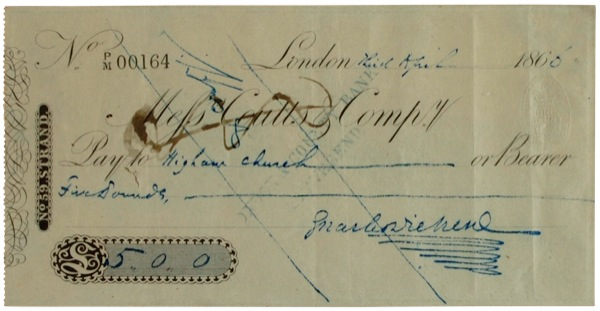 No P/M 00164 London April 1866
Messrs Coutts & Compy
Pay to Higham Church or Bearer
Five Pounds
Charles Dickens
£ 5.0.0
No 59, STRAND.